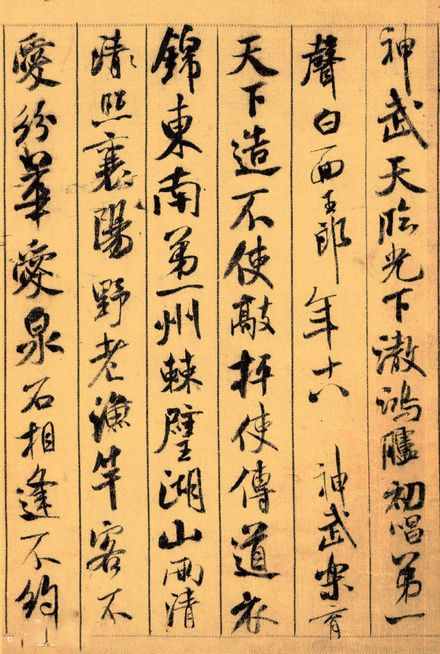 神武天臨光下澈鴻臚初唱第一
聲白面玉郎年十八 神武樂育
天下造不使敲抨使傳道衣
錦東南第一州棘璧湖山兩清
清照襄陽野老漁竿客不
愛紛華愛泉石相逢不約